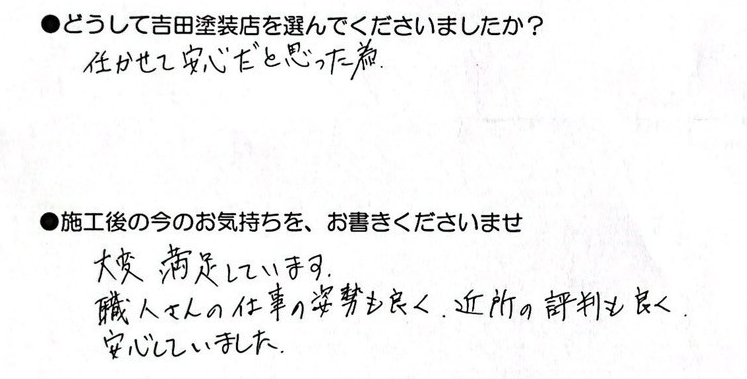 ●どうして吉田塗装店を選んでくださいましたか？
任かせて安心だと思った為.
●施工後の今のお気持ちを、お書きくださいませ
大変 満足しています.
職人さんの仕事の姿勢も良く. 近所の評判も良く.
安心していました.